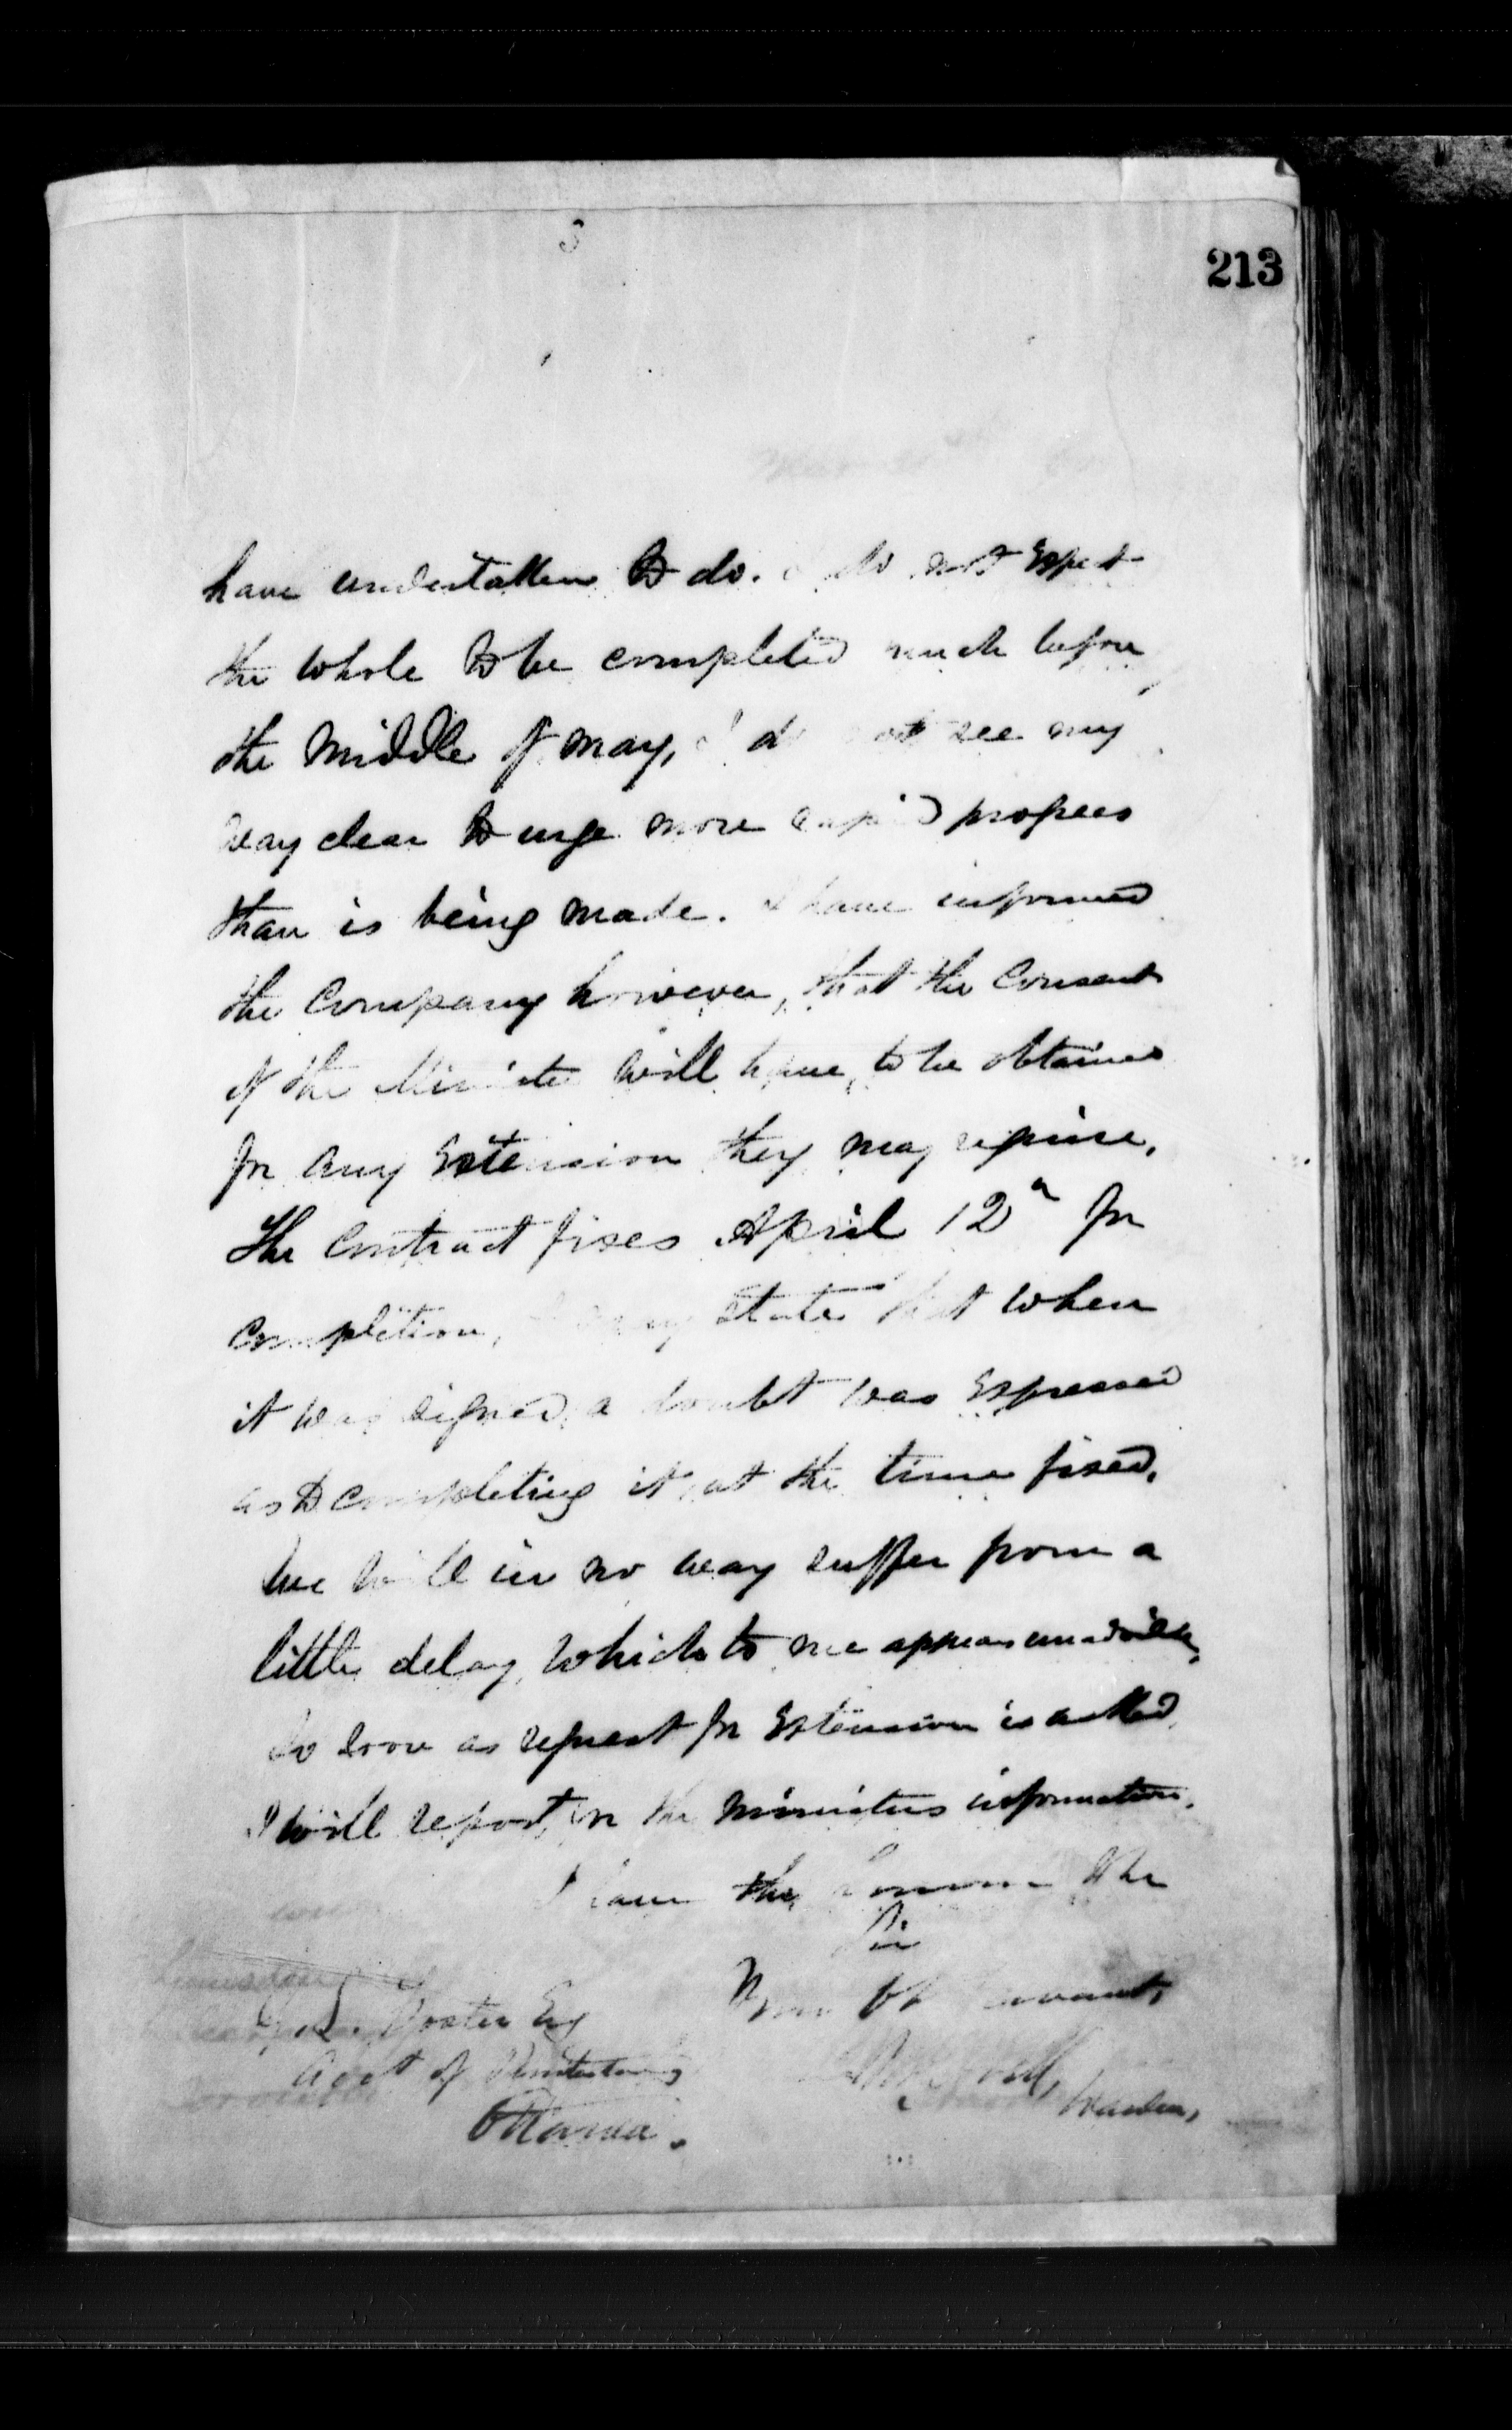 3
213
have undertaken to do. I do not expect
the whole to be completed much before
the middle of may, I do not see my
way clear to urge more rapid progress
than is being made. I have informed
the Company however, that the Consent
of the Minister will have to be obtained
for any Extension they may require.
The Contract fixes April 12th for
Completion, I may state that when
it was signed, a doubt was Expressed
as to Completing it at the time fixed.
We will in no way suffer from a
little delay, which to me appears unavoidable,
So soon as request for Extension is asked,
I will report, for the ministers information.
I have the honour &c
Sir
Your Ob servant,
Foster Esq
Acct of Penitentiaries
Ottawa.
Warden,